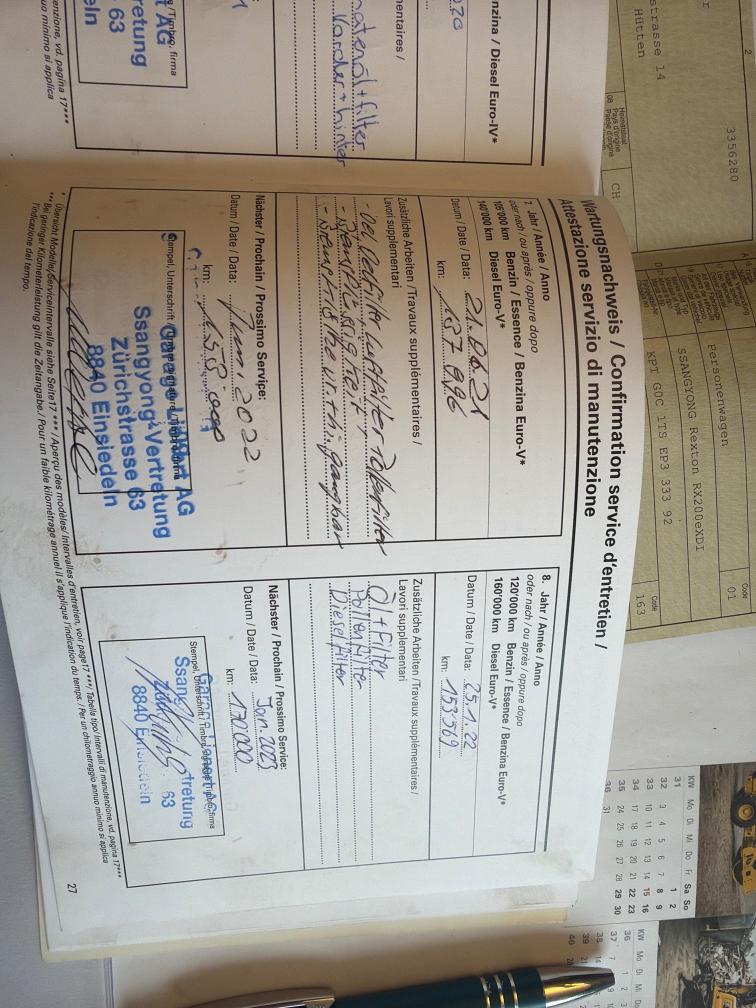 Wartungsnachweis / Confirmation service d'entretien /
Attestazione servizio di manutenzione
7. Jahr / Année / Anno
oder nach / ou après / oppure dopo
105'000 km Benzin / Essence / Benzina Euro-V*
140'000 km Diesel Euro-V*
Datum / Date / Data: 21.06.21
km: 137 996
Zusätzliche Arbeiten / Travaux supplémentaires /
Lavori supplementari
- Oel, Oelfilter, Luftfilter, Pollenfilter
Nächster / Prochain / Prossimo Service:
Datum / Date / Data: 2022
km: 158'000
Stempel, Unterschrift / Timbre, signature / Timbro, firma
Garage Lienert AG
Ssangyong-Vertretung
Zürichstrasse 63
8840 Einsiedeln
8. Jahr / Année / Anno
oder nach / ou après / oppure dopo
120'000 km Benzin / Essence / Benzina Euro-V*
160'000 km Diesel Euro-V*
Datum / Date / Data: 25.1.22
km: 153'569
Zusätzliche Arbeiten / Travaux supplémentaires /
Lavori supplementari
Öl + filter
Pollenfilter
Dieselfilter
Nächster / Prochain / Prossimo Service:
Datum / Date / Data: Jan. 2023
km: 170'000
Stempel, Unterschrift / Timbre, signature / Timbro, firma
Garage Lienert AG
Ssang tretung
63
8840 Einsiedeln
* Übersicht Modelle/Serviceintervalle siehe Seite 17 *** / Aperçu des modèles / Intervalles d'entretien, voir page 17 *** / Tabella tipo / Intervalli di manutenzione, vd. pagina 17***
*** Bei geringer Kilometerleistung gilt die Zeitangabe. / Pour un faible kilométrage annuel il s'applique l'indication du temps. / Per un chilometraggio annuo minimo si applica
l'indicazione del tempo.
27
nzina / Diesel Euro-IV*
mentaires /
+ filter
Timbro, firma
t AG
retung
63
eln
enzione, vd. pagina 17***
uo minimo si applica
2
strasse 14
Hütten
3356280
Heimatstaat
08 Pays d'origine
Paese d'origine
CH
Personenwagen
SSANGYONG Rexton RX200eXDI
KPT G0C 1TS EP3 333 92
Code
01
Code
163
KW Mo Di Mi Do Fr Sa So
31 1 2
32 3 4 5 6 7 8 9
33 10 11 12 13 14 15 16
34 17 18 19 20 21 22 23
35 24 25 26 27 28 29 30
36 31
KW Mo Di Mi Do
36 1 2 3
37 7 9 10
38 14
39 21
40 28